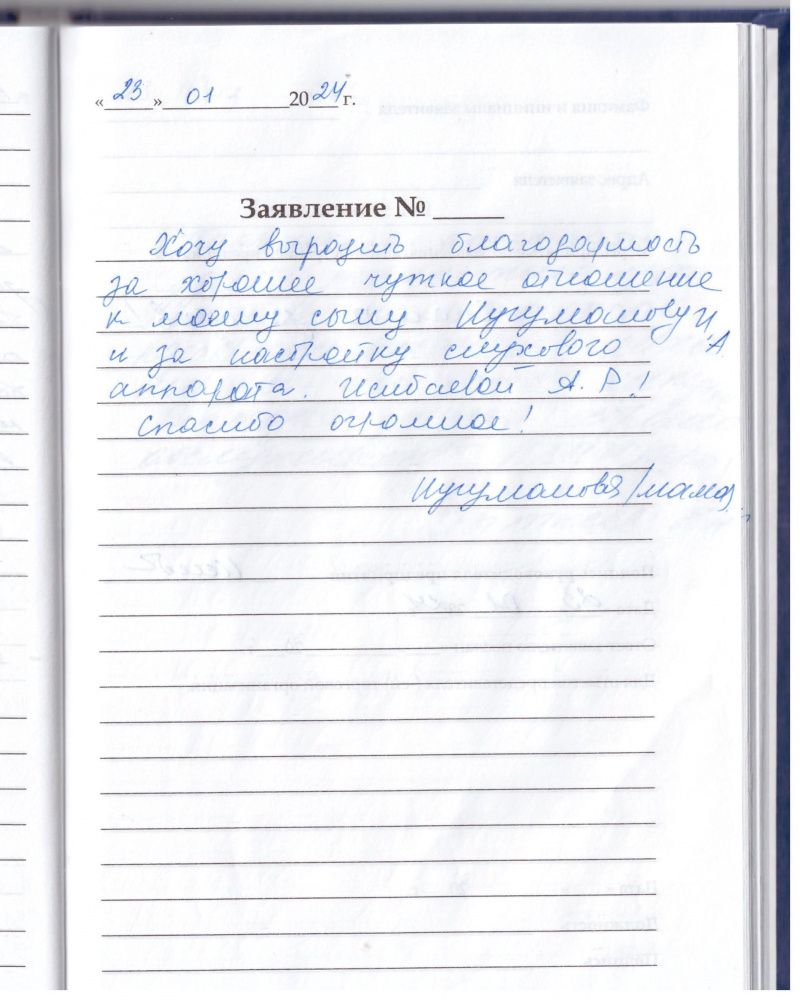 «23» 01 2024 г.
Заявление № ____
Хочу выразить благодарность
за хорошее чуткое отношение
к моему сыну Нугуманову И.А.
и за настройку слухового
аппарата. Исибаевой А. Р.!
Спасибо огромное!
Нугуманова /мама/